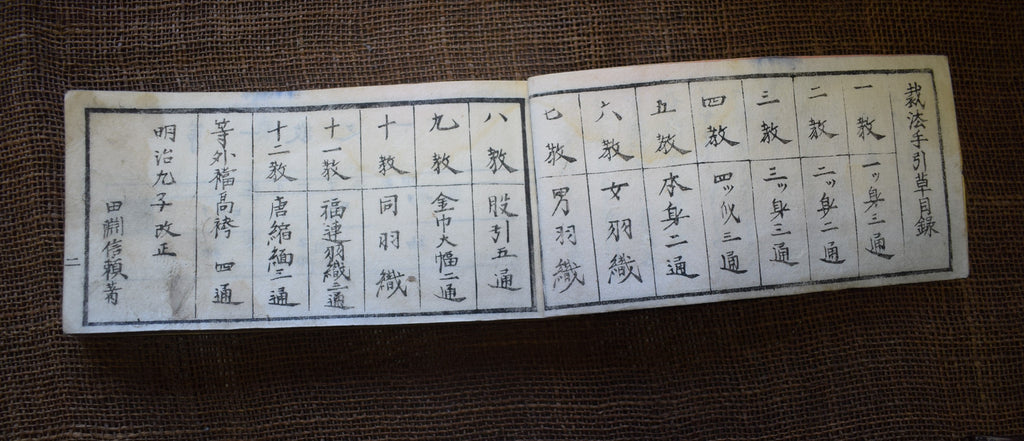 裁法手引草目録
一教 一ッ身三通
二教 二ッ身二通
三教 三ッ身三通
四教 四ッ仪三通
五教 本身二通
六教 女羽織
七教 男羽織
八教 股引五通
九教 金巾大幅二通
十教 同羽織
十一教 福連羽織三通
十二教 唐縮緬三通
等外福高袴 四通
明治九子改正
田淵信頼著
二